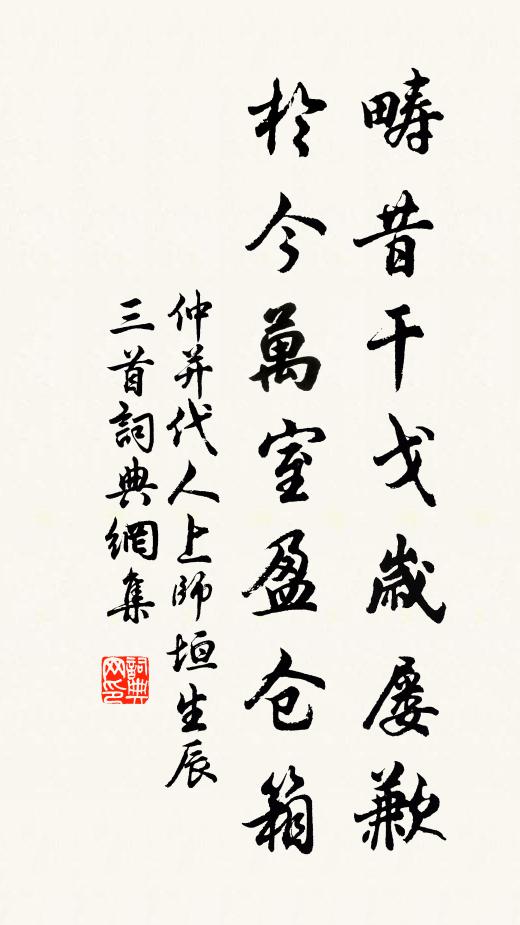 畴昔干戈歲屡歉
於今萬室盈仓箱
仲并代人上師垣生辰
三首詞典網集
詞典网印